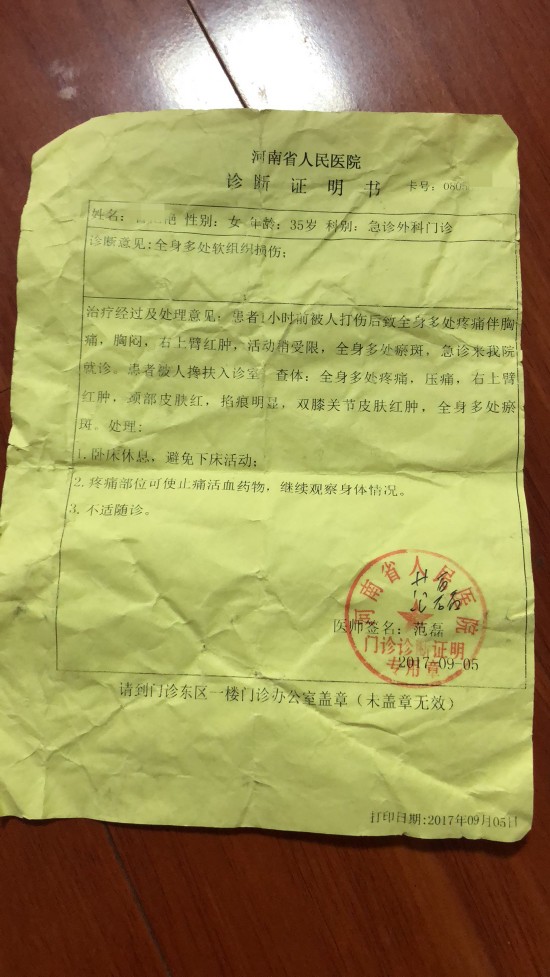 河南省人民医院
诊断证明书 卡号：080
姓名： 艳 性别：女 年龄：35岁 科别：急诊外科门诊
诊断意见：全身多处软组织损伤；
治疗经过及处理意见：患者1小时前被人打伤后致全身多处疼痛伴胸
痛，胸闷，右上臂红肿，活动稍受限，全身多处瘀斑，急诊来我院
就诊。患者被人搀扶入诊室 查体：全身多处疼痛，压痛，右上臂
红肿，颈部皮肤红，掐痕明显，双膝关节皮肤红肿，全身多处瘀
斑。处理：
1.卧床休息，避免下床活动；
2.疼痛部位可使止痛活血药物，继续观察身体情况。
3.不适随诊。
河南省人民医院
医师签名：范磊
门诊诊断证明
专用章
2017-09-05
请到门诊东区一楼门诊办公室盖章（未盖章无效）
打印日期:2017年09月05日